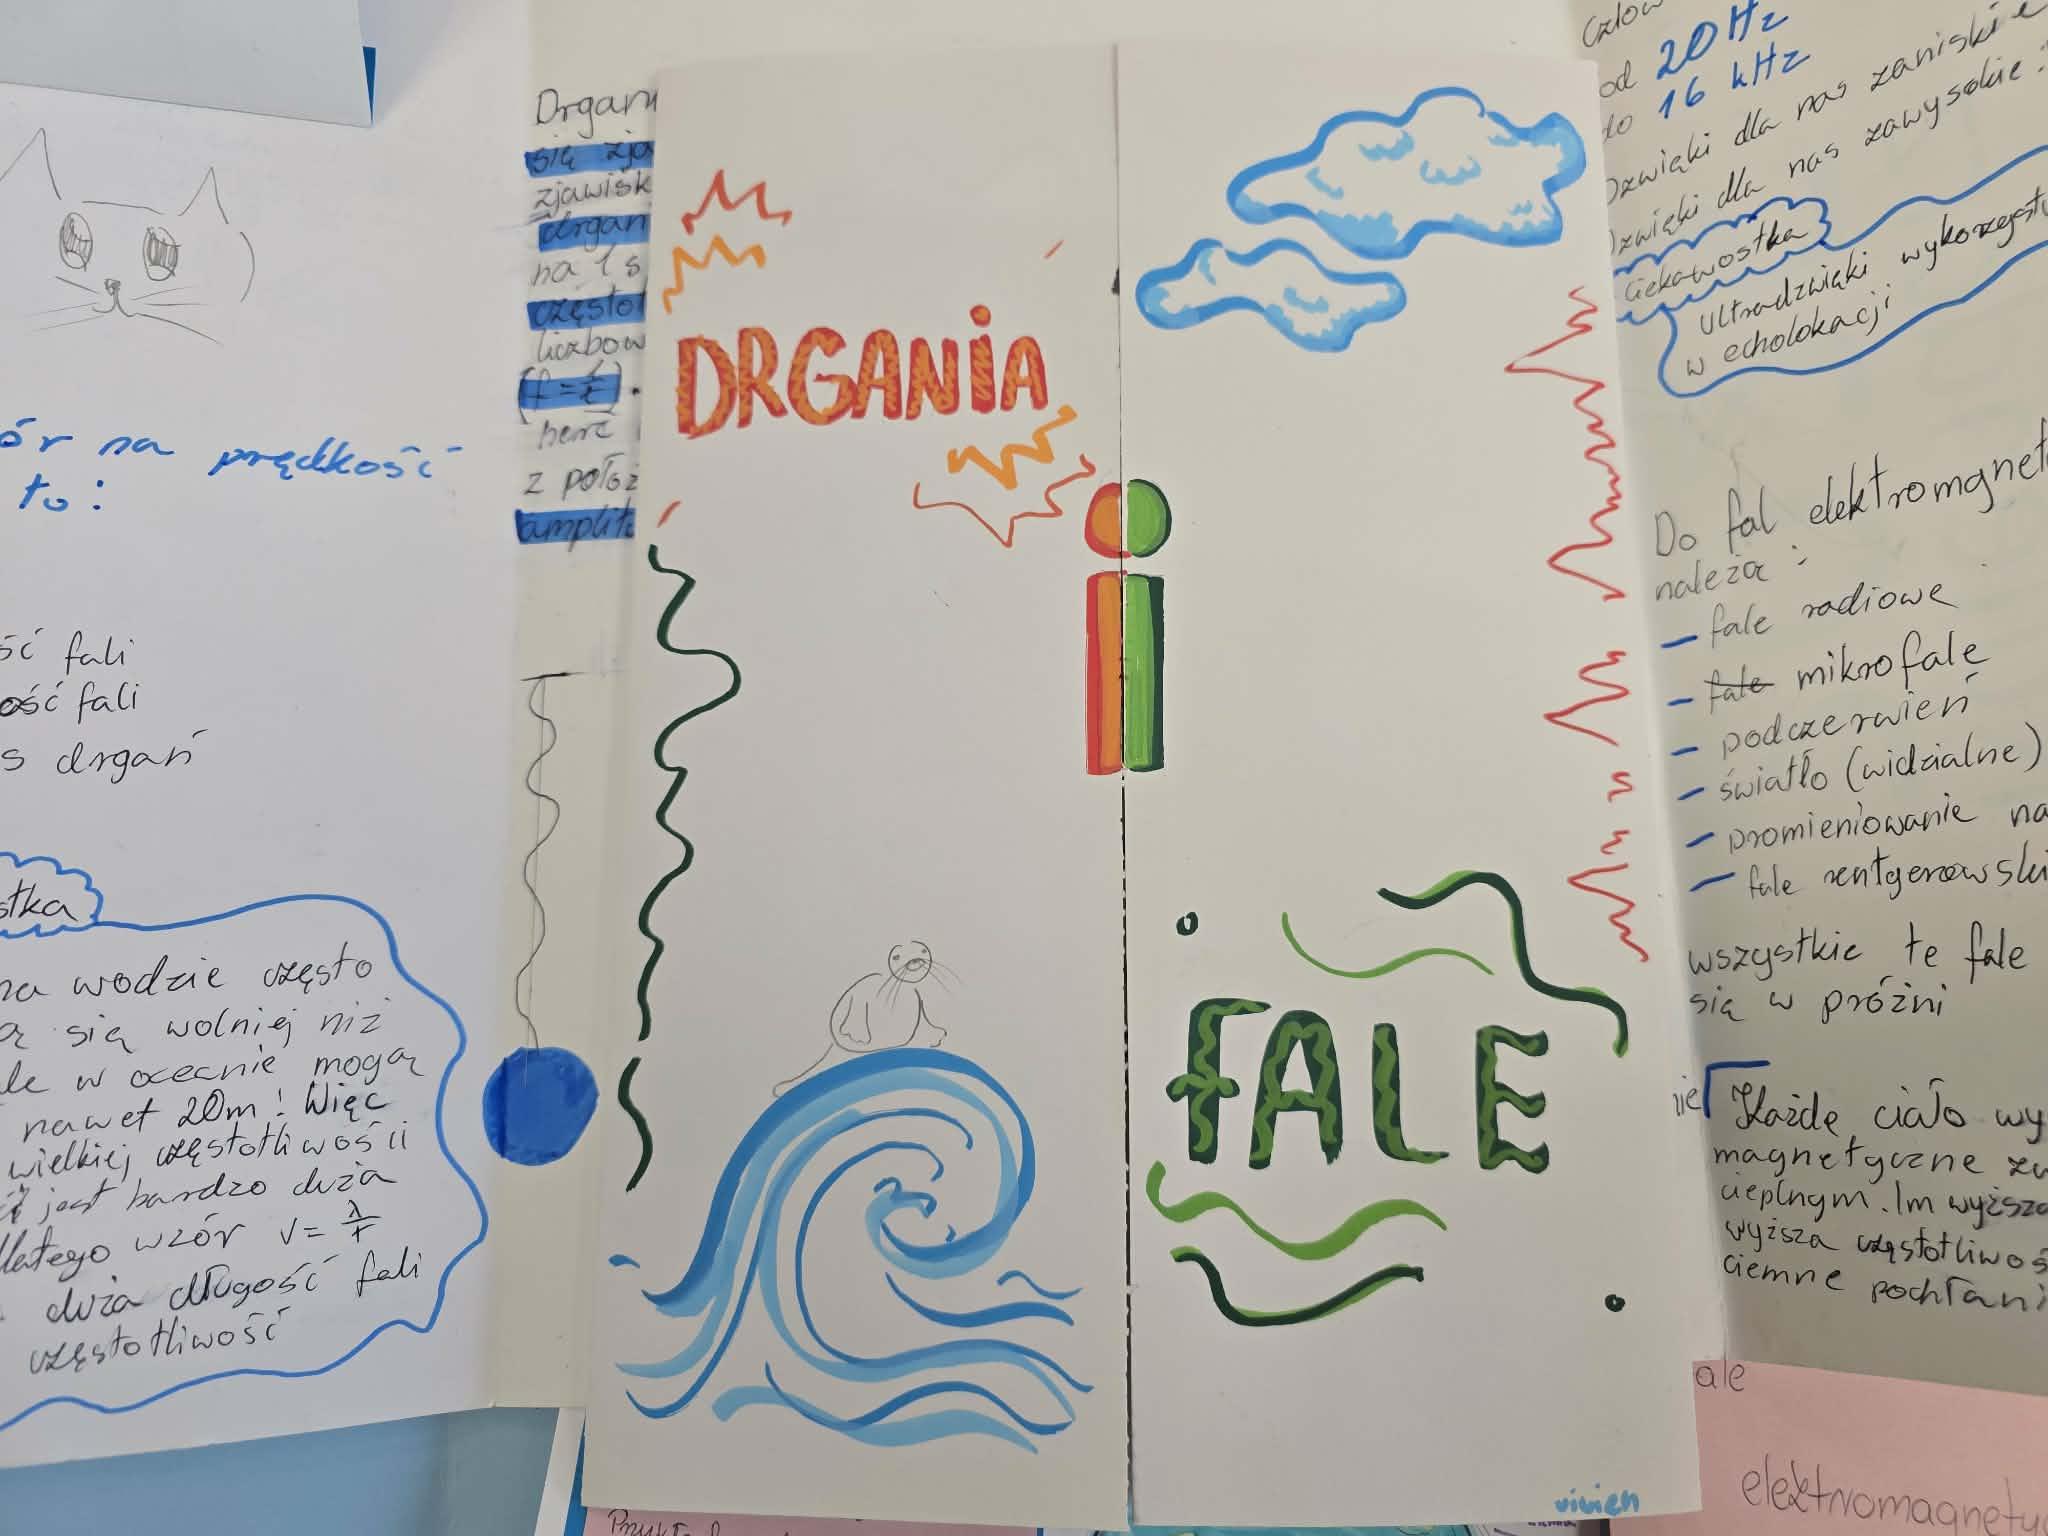 ór na prędkość
to:
ść fali
ość fali
s drgań
stka
na wodzie często
ą się wolniej niż
ale w oceanie mogą
nawet 20m! Więc
wielkiej częstotliwości
jest bardzo duża
dlatego wzór v = λ/T
duża długość fali
częstotliwość
Drgani
się zja
zjawisk
drgan
na 1 s
często
liczbow
herc
z położ
amplit
DRGANIA
i
FALE
vivien
Człow
od 20 Hz
do 16 kHz
Dźwięki dla nas zaniskie
Dźwięki dla nas zawysokie:
ciekawostka
ultradźwięki wykorzystu
w echolokacji
Do fal elektromgnet
należą:
- fale radiowe
- fale mikrofale
- podczerwień
- światło (widzialne)
- promieniowanie na
- fale rentgenowski
wszystkie te fale
się w próżni
nie
Każde ciało wy
magnetyczne zw
cieplnym. Im wyższa
wyższa częstotliwoś
ciemne pochłani
ale
elektromagnetyc